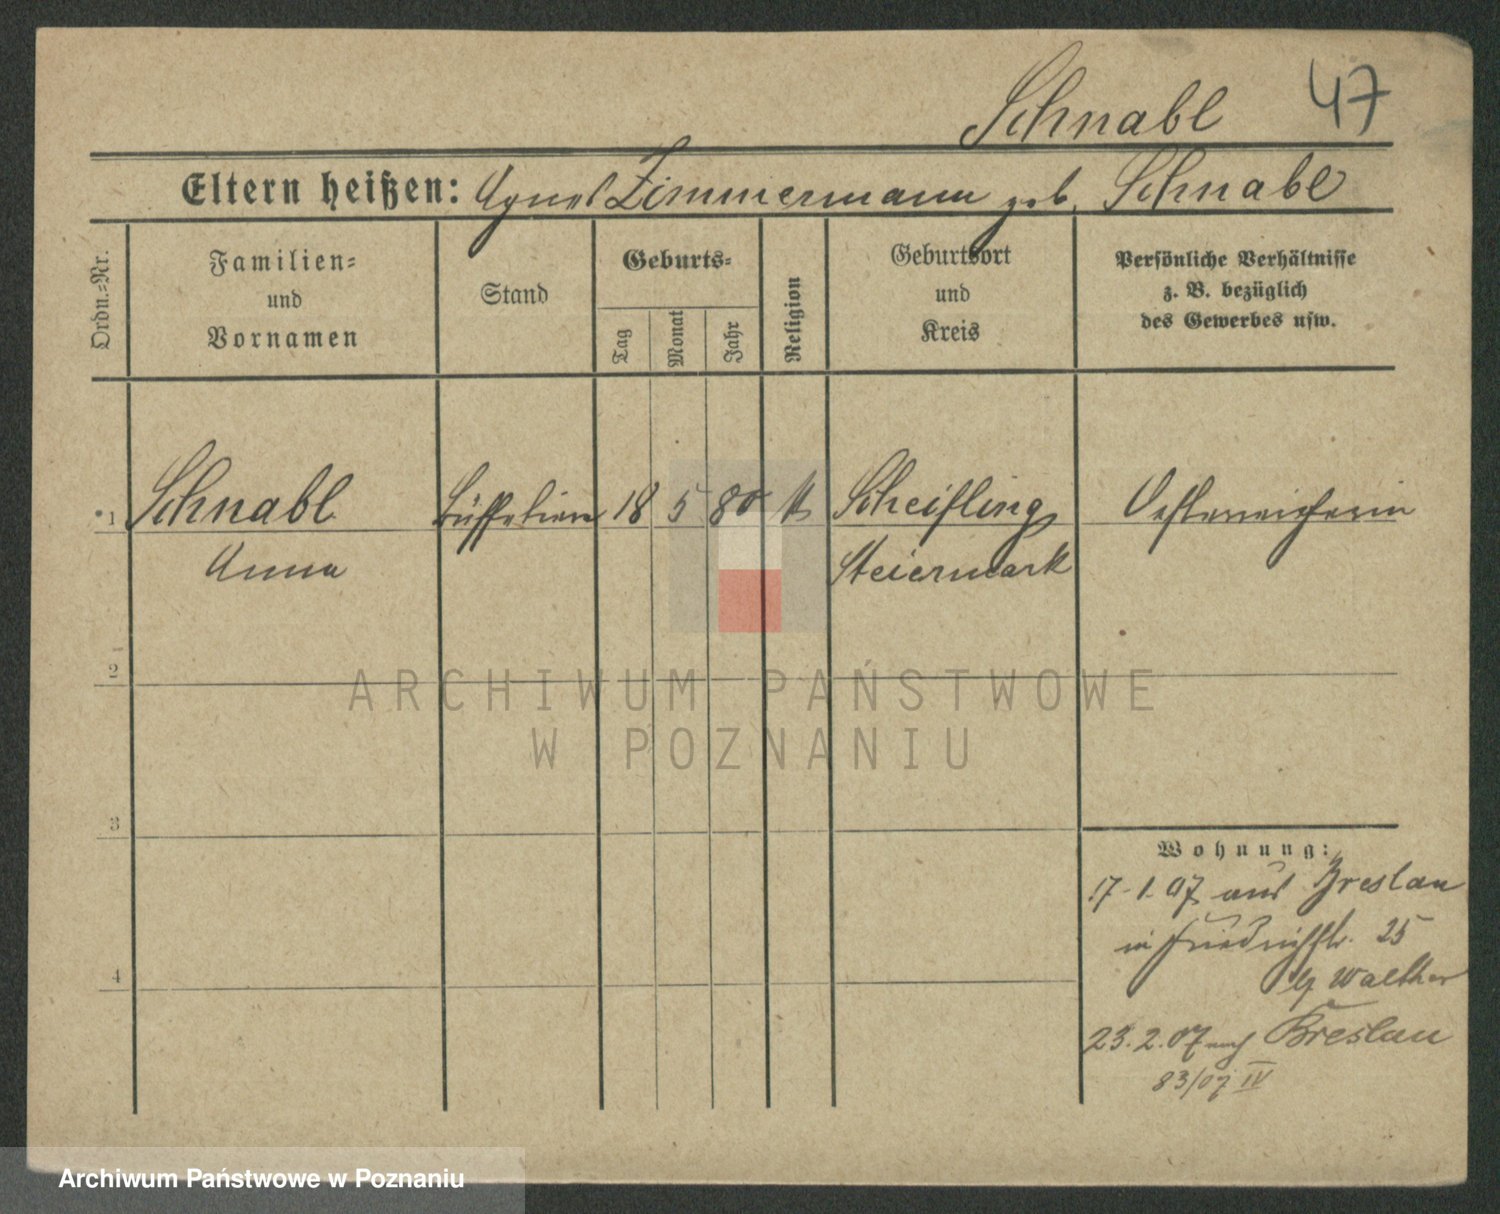 Schnabl 47
Eltern heißen: Agnes Zimmermann geb. Schnabl
Ordn.-Nr.
Familien-
und
Vornamen
Stand
Geburts-
Tag
Monat
Jahr
Religion
Geburtsort
und
Kreis
Persönliche Verhältnisse
z. B. bezüglich
des Gewerbes usw.
1 Schnabl 18 5 80 k Scheifling Oesterreicherin
Anna Steiermark
2
3
4
Wohnung:
17-1.07 aus Breslau
in Friedrichstr. 25
Walther
23.2.07 nach Breslau
83/07 IV
ARCHIWUM PAŃSTWOWE
W POZNANIU
Archiwum Państwowe w Poznaniu